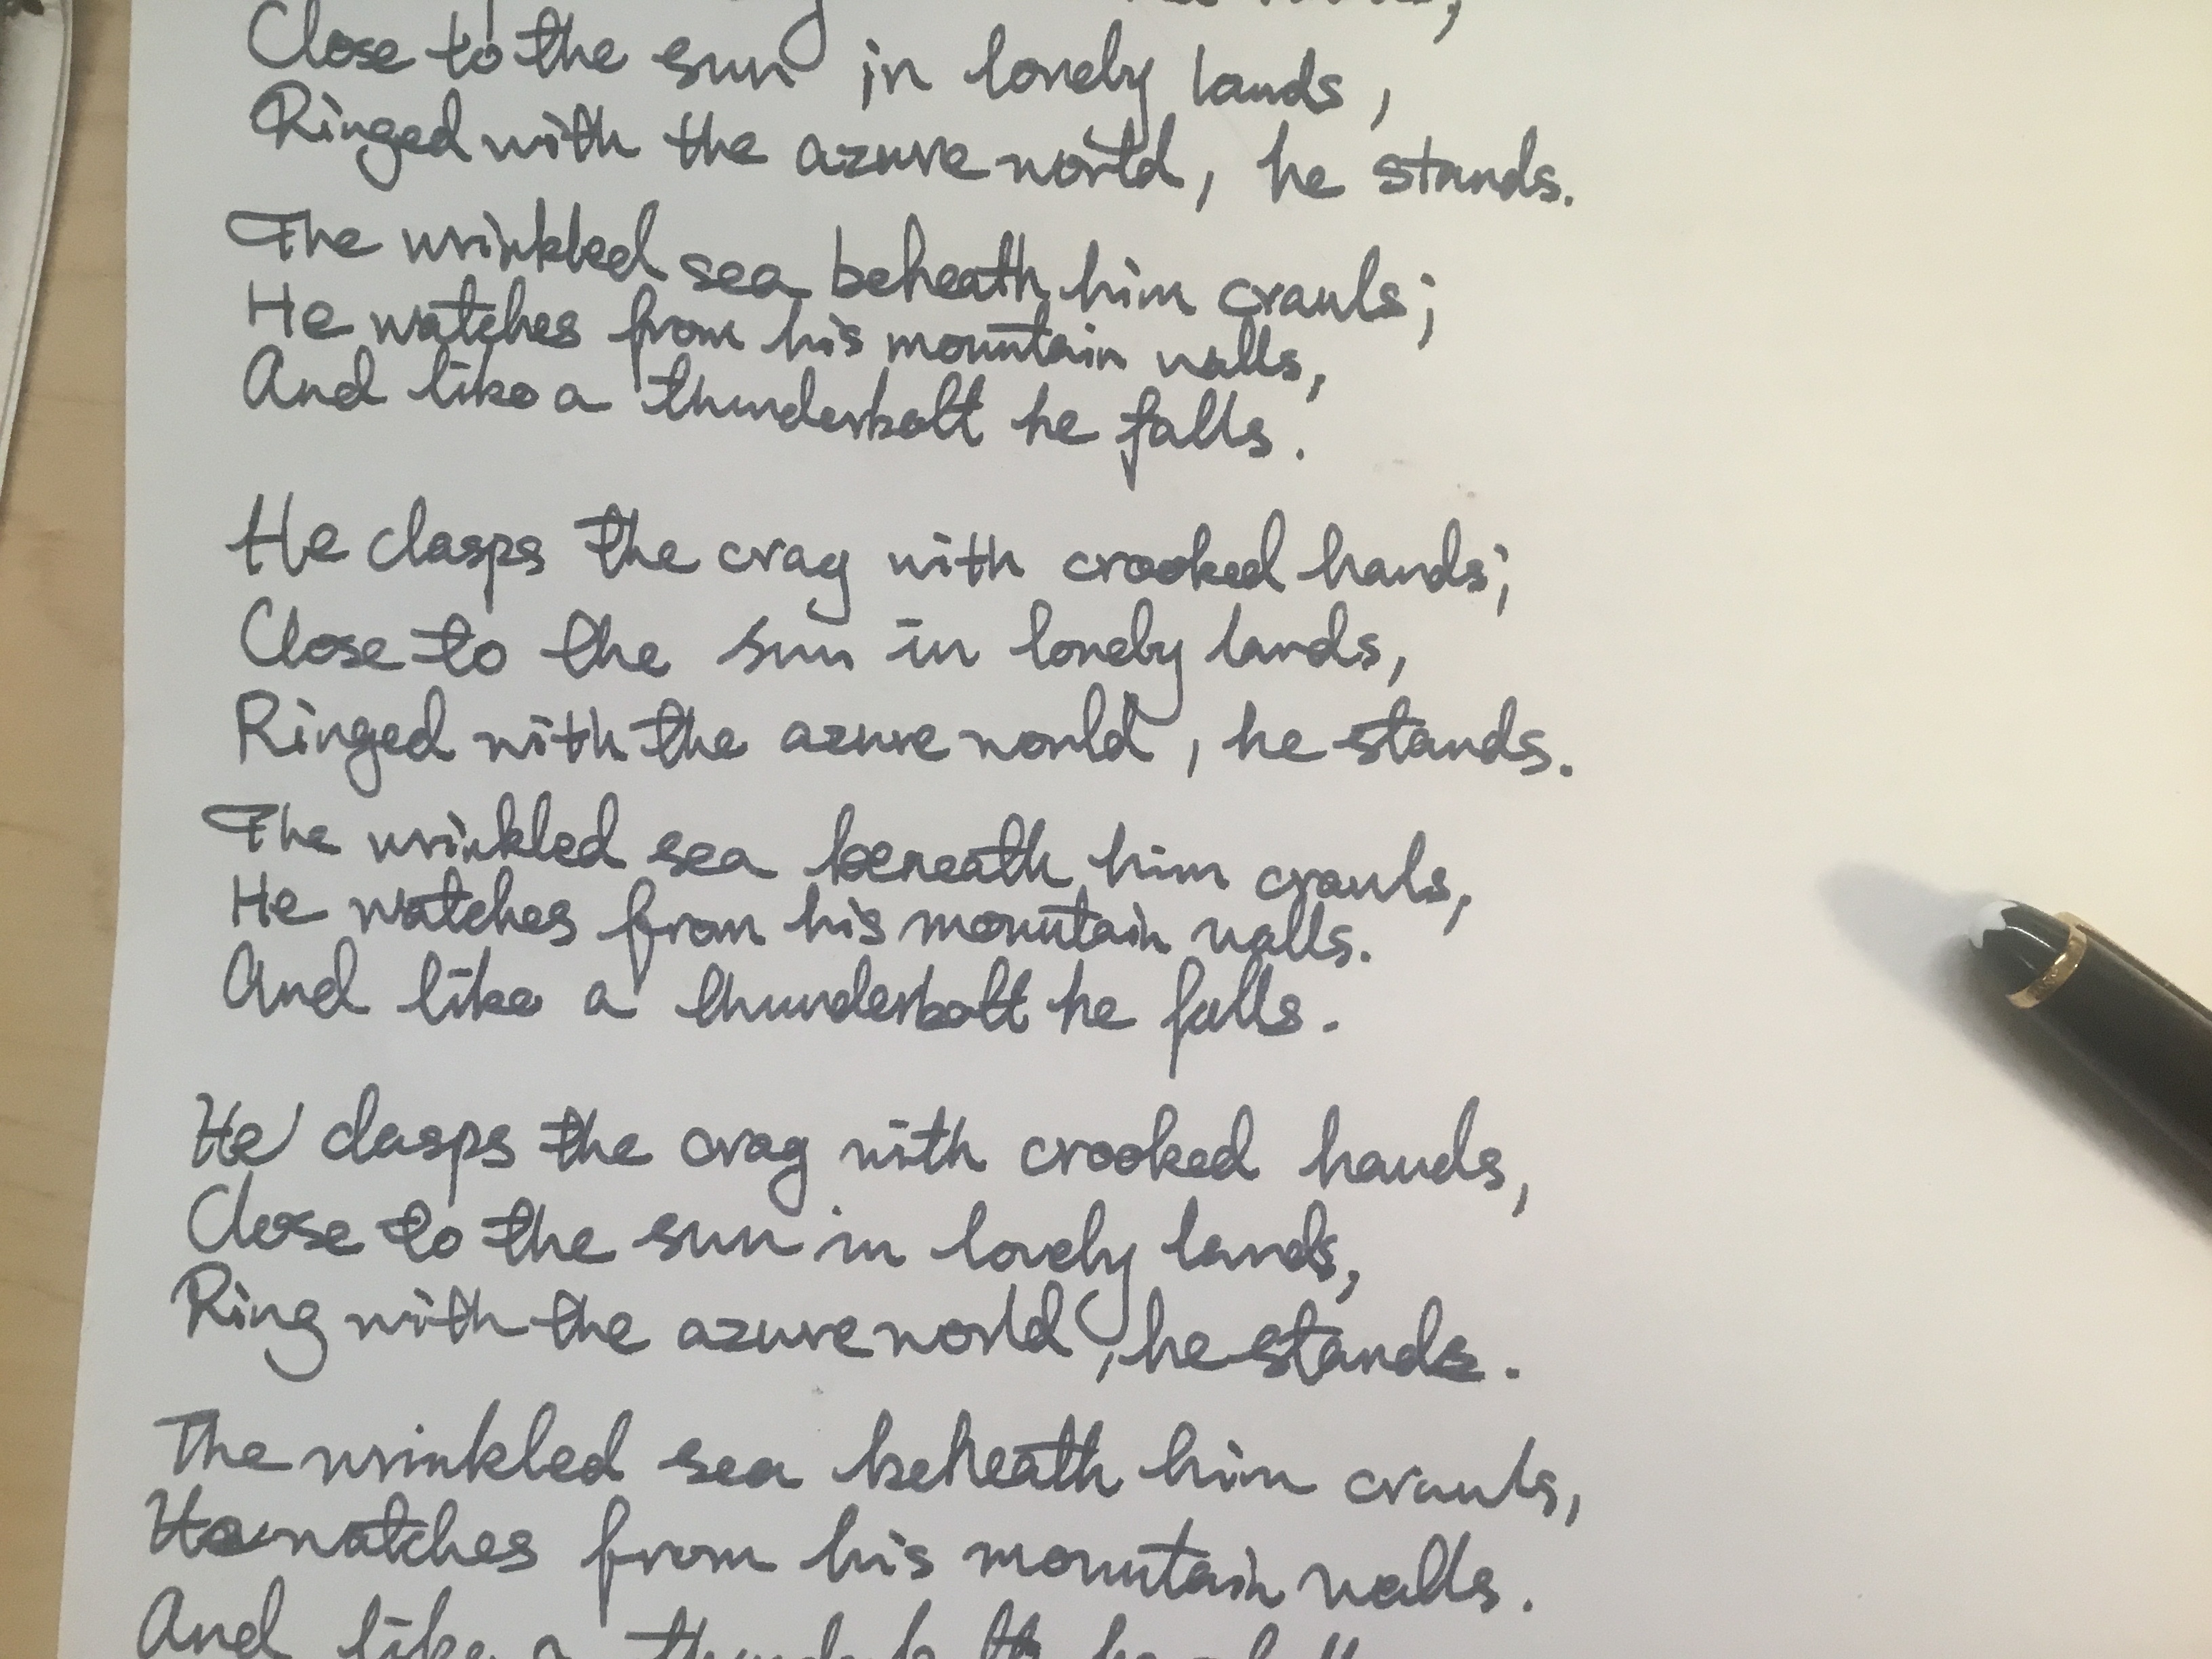 Close to the sun in lonely lands,
Ringed with the azure world, he stands.
The wrinkled sea beheath him crawls;
He watches from his mountain walls,
And like a thunderbolt he falls.
He clasps the crag with crooked hands;
Close to the sun in lonely lands,
Ringed with the azure world, he stands.
The wrinkled sea beneath him crawls,
He watches from his mountain walls.
And like a thunderbolt he falls.
He clasps the crag with crooked hands,
Close to the sun in lonely lands,
Ring with the azure world, he stands.
The wrinkled sea beheath him crawls,
He watches from his mountain walls.
And like a